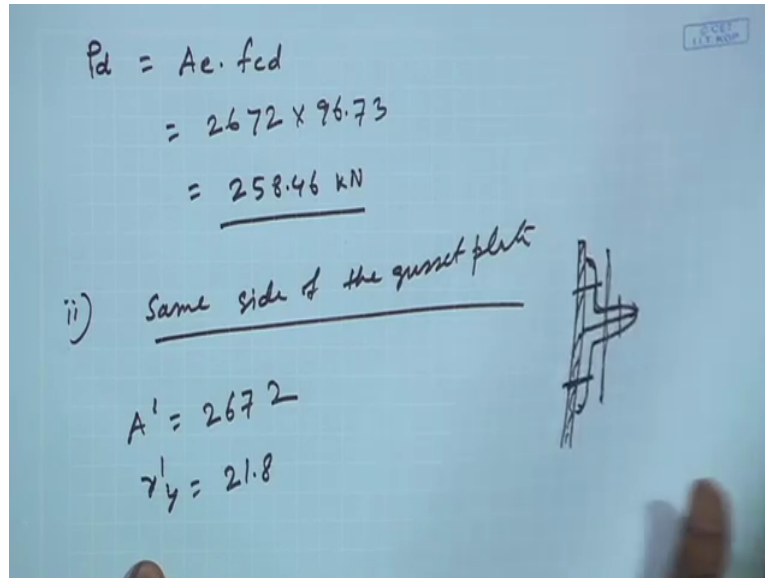 Pd = Ae. fcd
= 2672 x 96.73
= 258.46 KN
ii) Same side of the gusset plate
A' = 2672
r'y = 21.8